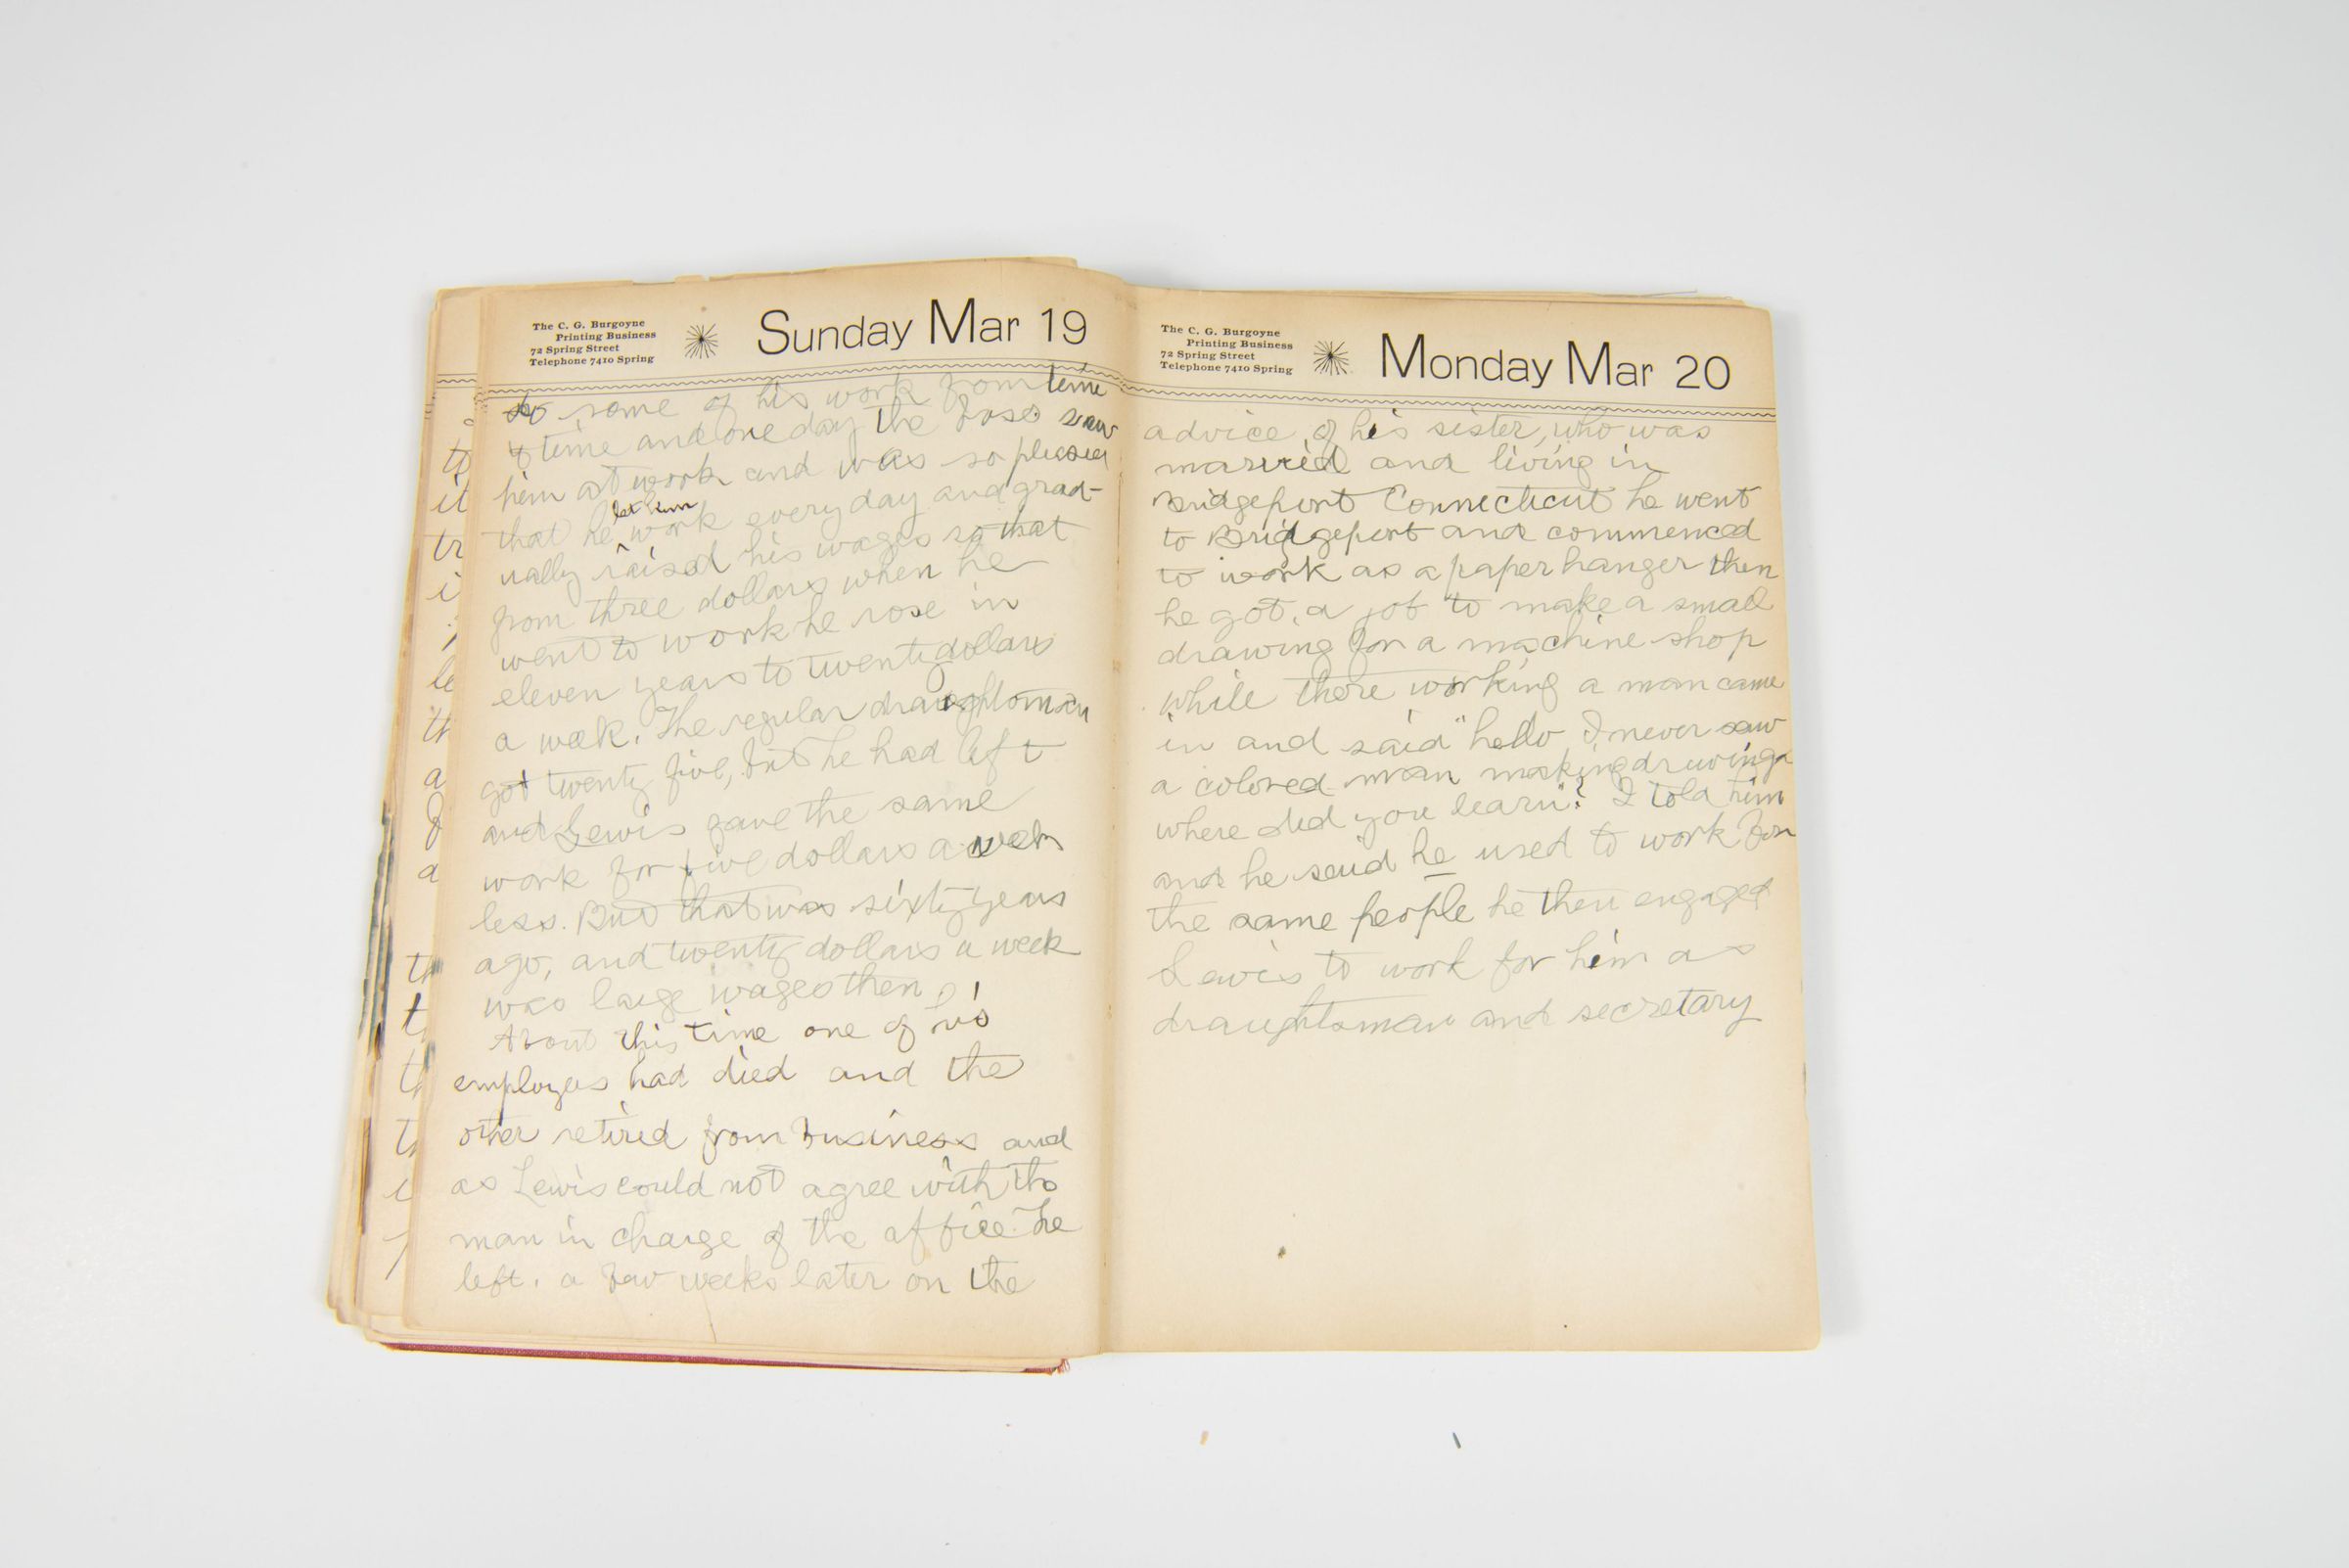 The C. G. Burgoyne
Printing Business
72 Spring Street
Telephone 7410 Spring
Sunday Mar 19
do some of his work from time
to time and one day the boss saw
him at work and was so pleased
let him
that he work every day and grad-
ually raised his wages so that
from three dollars when he
went to work he rose in
eleven years to twenty dollars
a week. The regular draughtsman
got twenty five, but he had left
and Lewis gave the same
work for five dollars a week
less. But that was sixty years
ago, and twenty dollars a week
was large wages then
About this time one of his
employers had died and the
other retired from business and
as Lewis could not agree with the
man in charge of the office he
left. a few weeks later on the
The C. G. Burgoyne
Printing Business
72 Spring Street
Telephone 7410 Spring
Monday Mar 20
advice of his sister, who was
married and living in
Bridgeport Connecticut he went
to Bridgeport and commenced
to work as a paper hanger then
he got a job to make a small
drawing for a machine shop
while there working a man came
in and said "hello I never saw
a colored man making drawings
where did you learn"? I told him
and he said he used to work for
the same people he then engaged
Lewis to work for him as
draughtsman and secretary